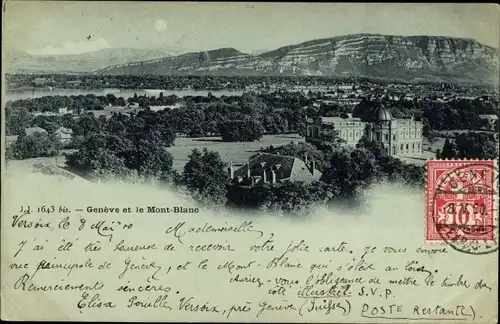 J.J. 1643 bis. - Genève et le Mont-Blanc
Versoix le 8 Mai
Mademoiselle
J'ai été très heureuse de recevoir votre jolie carte. Je vous envoie
vue principale de Genève, et le Mont-Blanc qui s'étend au loin.
Remerciements sincères.
Ayez-vous l'obligeance de mettre le timbre du
côté illustré S.V.P.
Elisa Versoix, près Genève (Suisse)
(POSTE Restante)
10